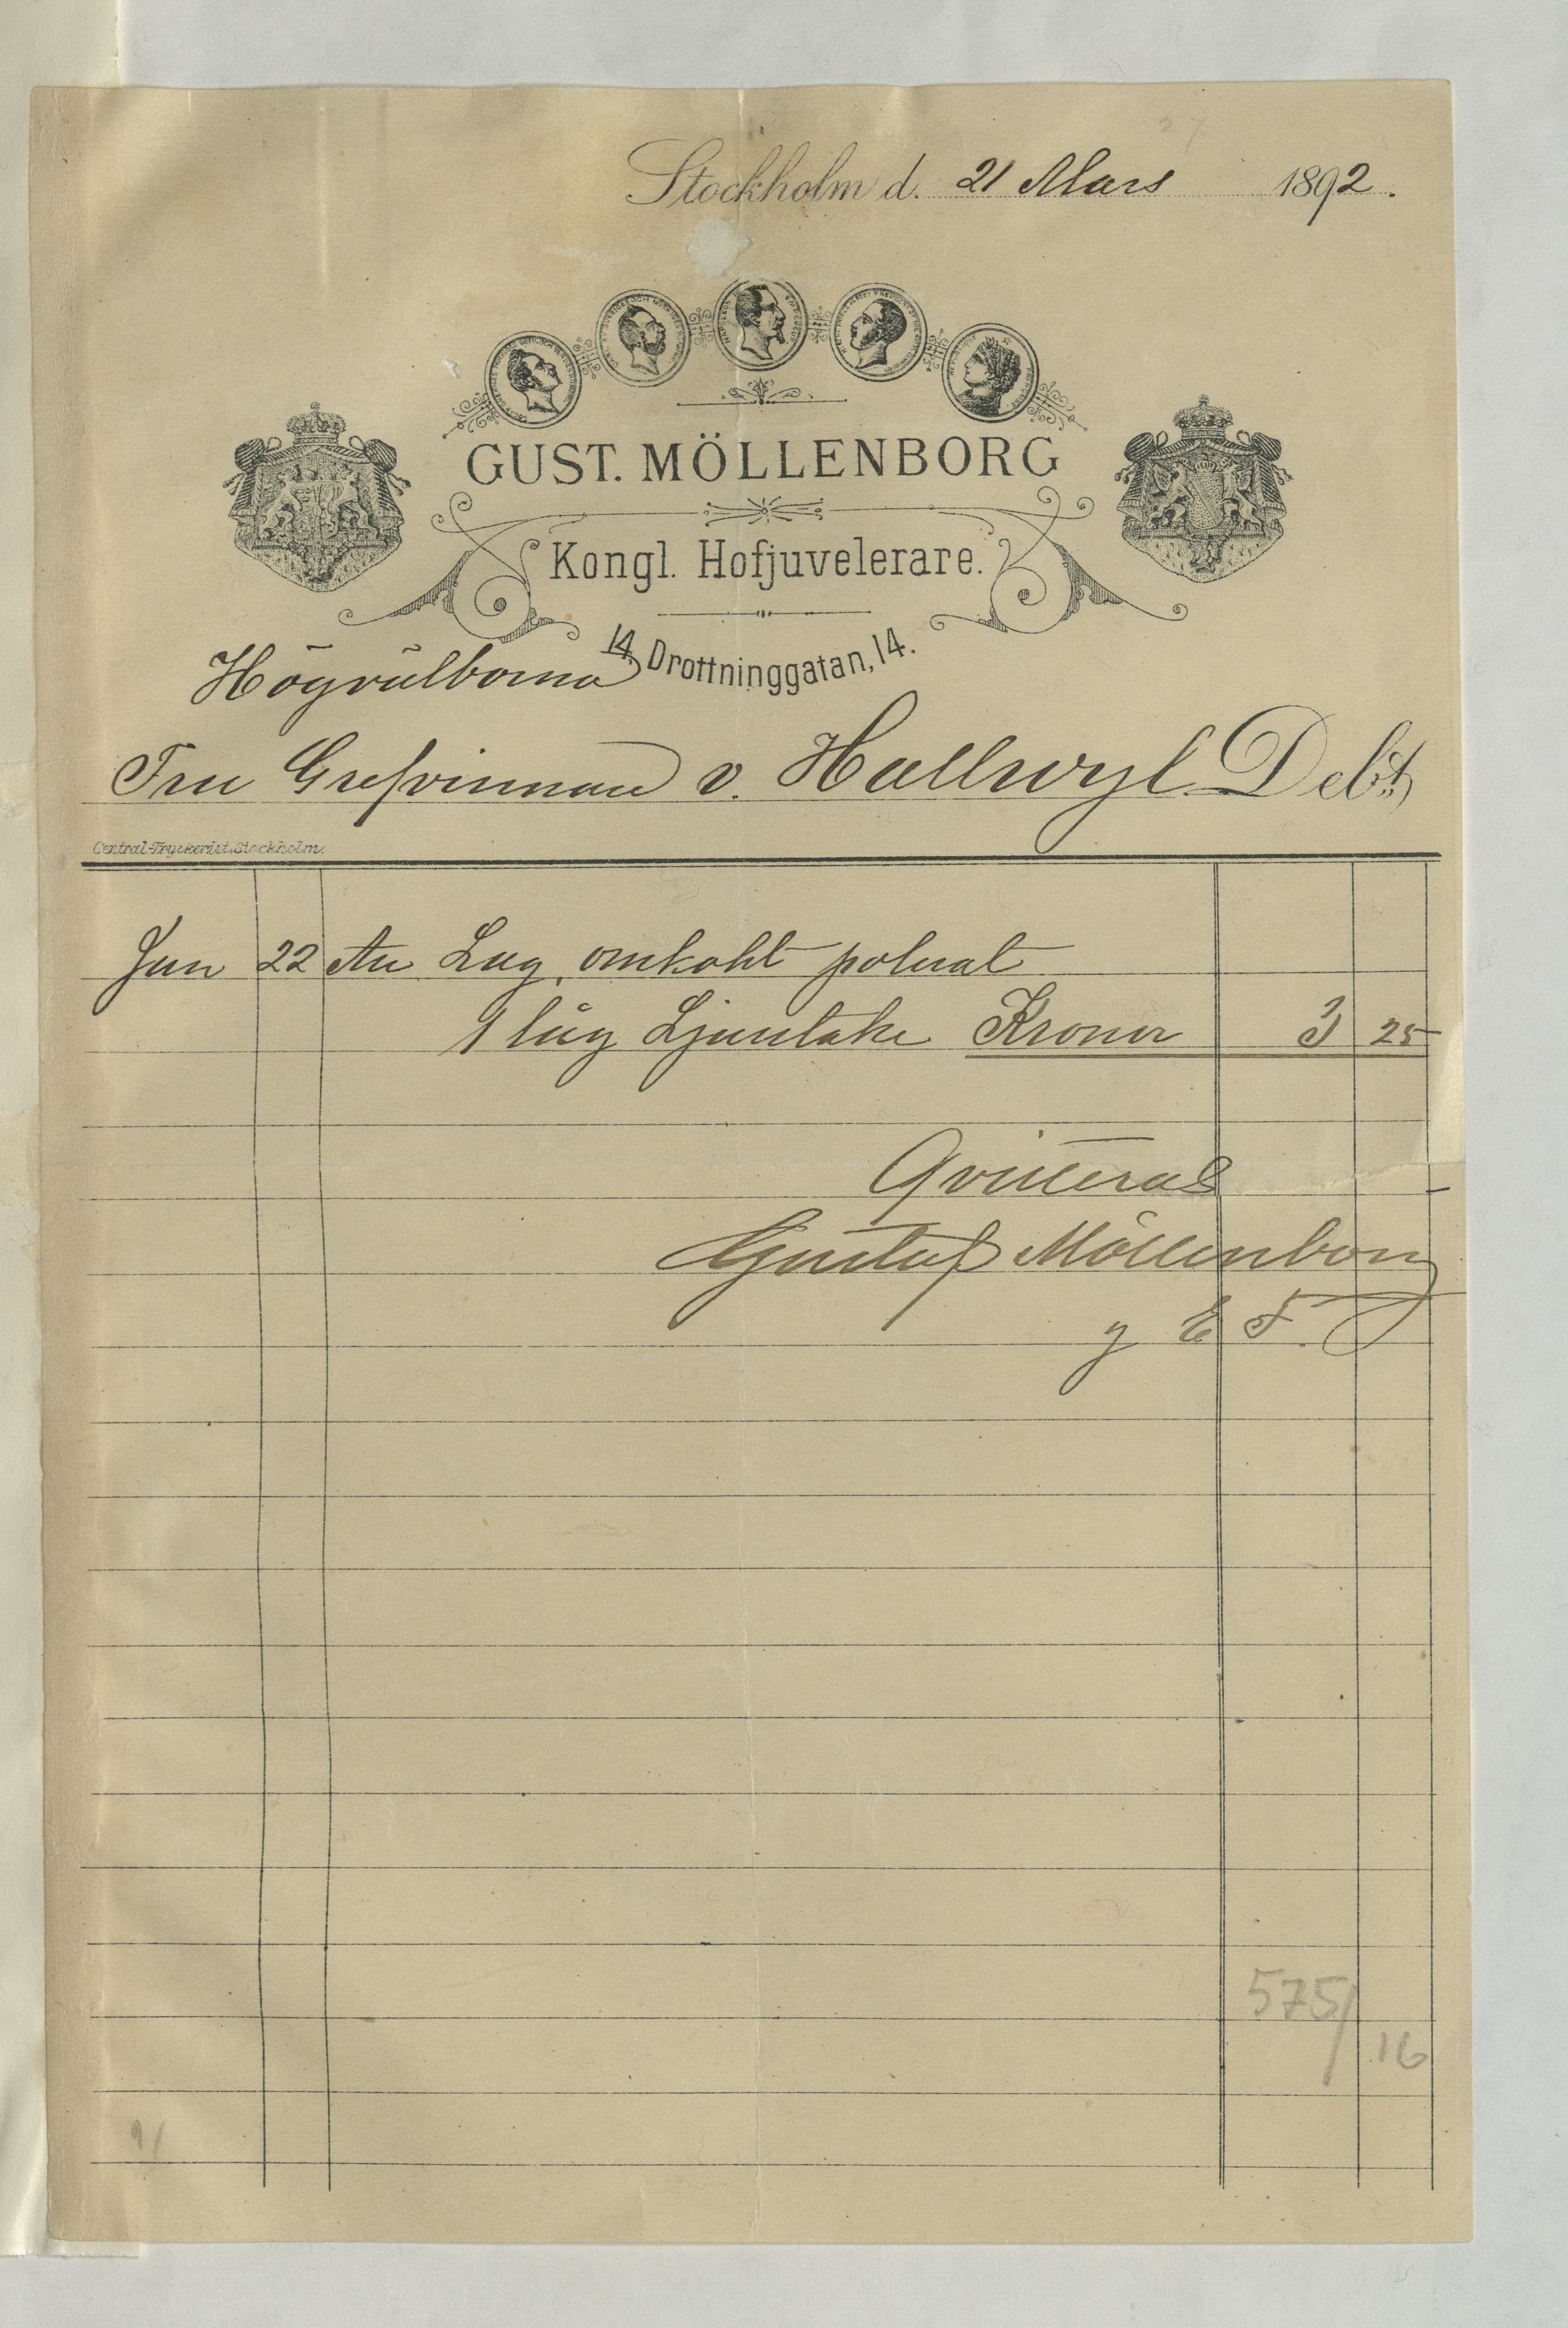 Stockholm d. 21 Mars 1892.
GUST. MÖLLENBORG
Kongl. Hofjuvelerare.
14, Drottninggatan, 14.
Högvälborna
Fru Grefvinnan v. Hallwyl Debet
Central-Tryckeriet, Stockholm.
Jan 22 An Lag, omkokt polerat
1 låg Ljustake Kronor 3 25
Qvitteras
Gustaf Möllenborg
g E F.
575/
16
91